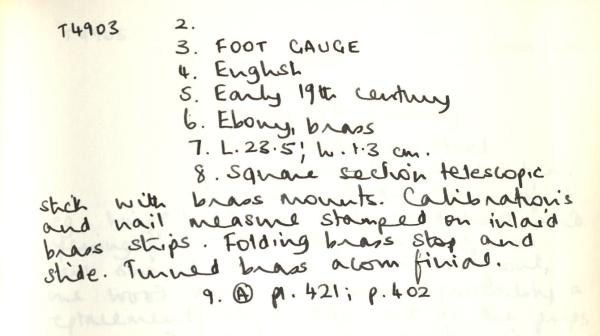 T4903 2.
3. FOOT GAUGE
4. English
5. Early 19th century
6. Ebony, brass
7. L. 23.5; W. 1.3 cm.
8. Square section telescopic
stick with brass mounts. Calibrations
and nail measure stamped on inlaid
brass strips. Folding brass stop and
slide. Turned brass acorn finial.
9. Ⓐ pl. 421; p. 402